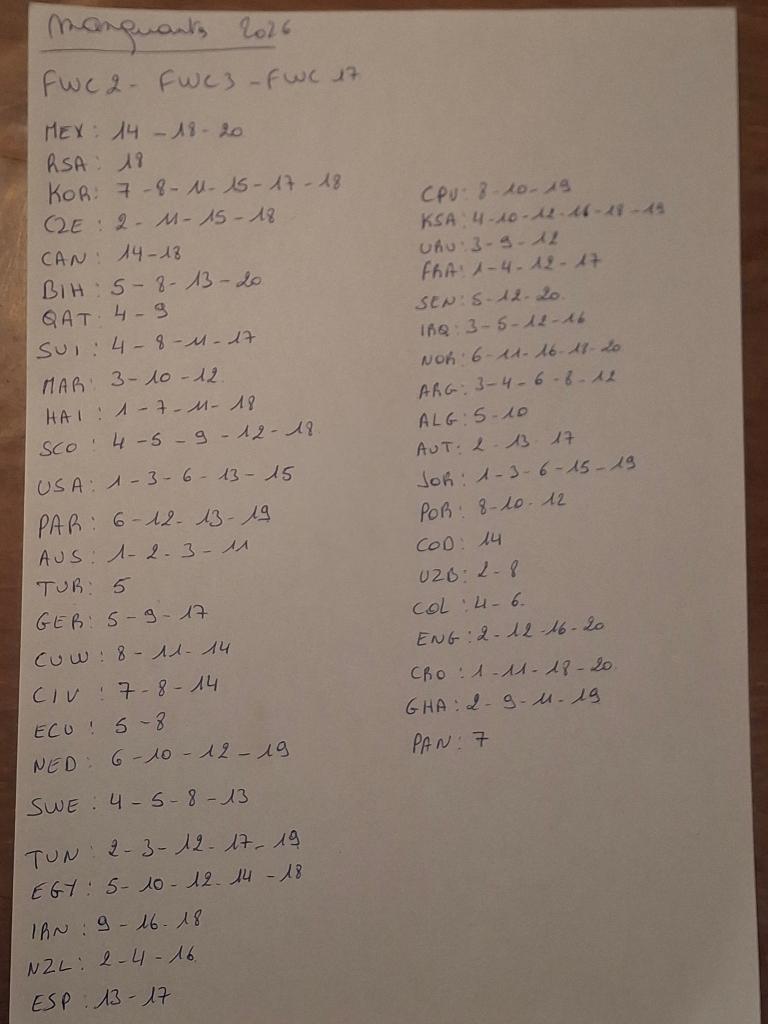 Manquants 2026
FWC2 - FWC3 - FWC 17
MEX : 14 - 18 - 20
RSA : 18
KOR : 7 - 8 - 11 - 15 - 17 - 18
CZE : 2 - 11 - 15 - 18
CAN : 14 - 18
BIH : 5 - 8 - 13 - 20
QAT : 4 - 9
SUI : 4 - 8 - 11 - 17
MAR : 3 - 10 - 12
HAI : 1 - 7 - 11 - 18
SCO : 4 - 5 - 9 - 12 - 18
USA : 1 - 3 - 6 - 13 - 15
PAR : 6 - 12 - 13 - 19
AUS : 1 - 2 - 3 - 11
TUR : 5
GER : 5 - 9 - 17
CUW : 8 - 11 - 14
CIV : 7 - 8 - 14
ECU : 5 - 8
NED : 6 - 10 - 12 - 19
SWE : 4 - 5 - 8 - 13
TUN : 2 - 3 - 12 - 17 - 19
EGY : 5 - 10 - 12 - 14 - 18
IRN : 9 - 16 - 18
NZL : 2 - 4 - 16
ESP : 13 - 17
CPV : 8 - 10 - 19
KSA : 4 - 10 - 12 - 16 - 18 - 19
URU : 3 - 9 - 12
FRA : 1 - 4 - 12 - 17
SEN : 5 - 12 - 20
IRQ : 3 - 5 - 12 - 16
NOR : 6 - 11 - 16 - 18 - 20
ARG : 3 - 4 - 6 - 8 - 12
ALG : 5 - 10
AUT : 2 - 13 - 17
JOR : 1 - 3 - 6 - 15 - 19
POR : 8 - 10 - 12
COD : 14
UZB : 2 - 8
COL : 4 - 6
ENG : 2 - 12 - 16 - 20
CRO : 1 - 11 - 18 - 20
GHA : 2 - 9 - 11 - 19
PAN : 7